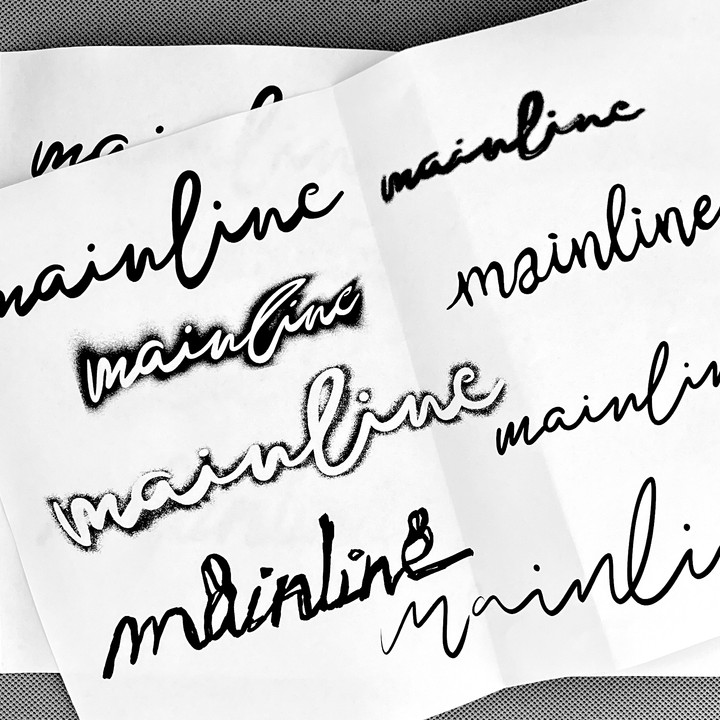 mainline
mainline
mainline
mainline
mainline
mainline
mainlin
mainli